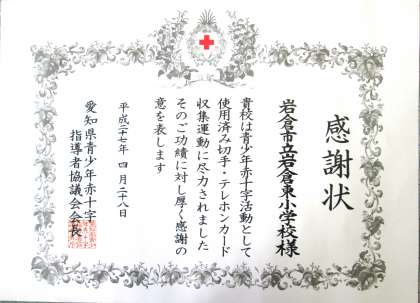 感謝状
岩倉市立岩倉東小学校様
貴校は青少年赤十字活動として
使用済み切手・テレホンカード
収集運動に尽力されました
そのご功績に対し厚く感謝の
意を表します
平成二十七年 四月二十八日
愛知県青少年赤十字
指導者協議会会長